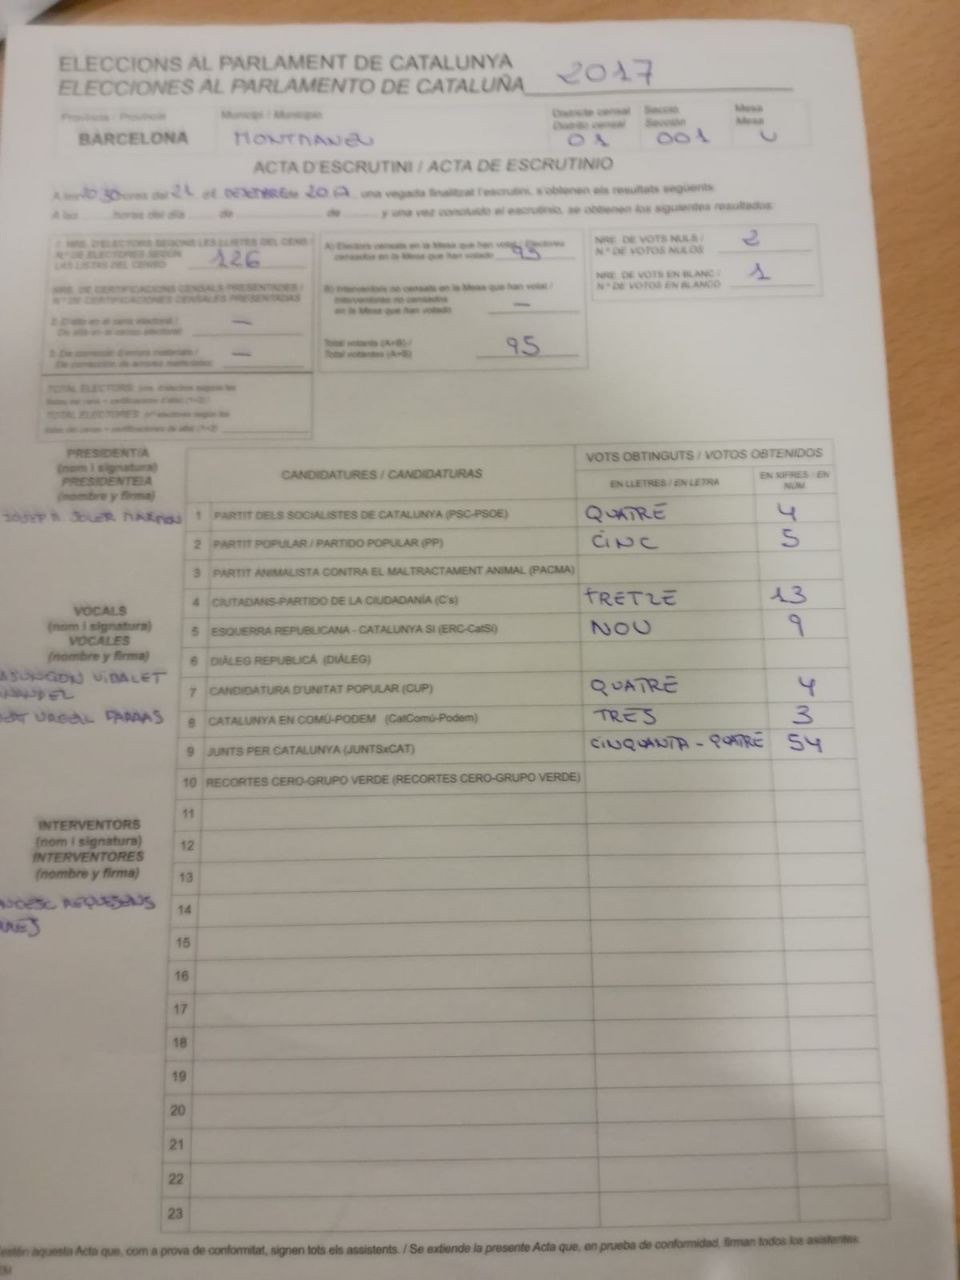 ELECCIONS AL PARLAMENT DE CATALUNYA
ELECCIONES AL PARLAMENTO DE CATALUÑA 2017
Província / Provincia Municipi / Municipio Districte censal Secció Mesa
Distrito censal Sección Mesa
BARCELONA MONTMANEU 01 001 U
ACTA D'ESCRUTINI / ACTA DE ESCRUTINIO
A les 20 30 hores del 21 de DESEMBRE de 2017, una vegada finalitzat l'escrutini, s'obtenen els resultats següents:
A las hores del día de de y una vez concluido el escrutinio, se obtienen los siguientes resultados:
1. NRE. D'ELECTORS SEGONS LES LLISTES DEL CENS /
N.º DE ELECTORES SEGÚN
LAS LISTAS DEL CENSO 126
NRE. DE CERTIFICACIONS CENSALS PRESENTADES /
N.º DE CERTIFICACIONES CENSALES PRESENTADAS
2. D'alta en el cens electoral /
De alta en el censo electoral: —
3. De correcció d'errors materials /
De corrección de errores materiales: —
TOTAL ELECTORS
TOTAL ELECTORES
A) Electors censats en la Mesa que han votat / Electores
censados en la Mesa que han votado 95
B) Interventors no censats en la Mesa que han votat /
Interventores no censados
en la Mesa que han votado —
Total votants (A+B) /
Total votantes (A+B) 95
NRE. DE VOTS NULS /
N.º DE VOTOS NULOS 2
NRE. DE VOTS EN BLANC /
N.º DE VOTOS EN BLANCO 1
PRESIDENT/A
(nom i signatura)
PRESIDENTE/A
(nombre y firma)
JOSEP M SOLER
VOCALS
(nom i signatura)
VOCALES
(nombre y firma)
VIDALET
URGELL
INTERVENTORS
(nom i signatura)
INTERVENTORES
(nombre y firma)
REQUESENS
CANDIDATURES / CANDIDATURAS VOTS OBTINGUTS / VOTOS OBTENIDOS
EN LLETRES / EN LETRA EN XIFRES / EN NÚM.
1 PARTIT DELS SOCIALISTES DE CATALUNYA (PSC-PSOE) QUATRE 4
2 PARTIT POPULAR / PARTIDO POPULAR (PP) CINC 5
3 PARTIT ANIMALISTA CONTRA EL MALTRACTAMENT ANIMAL (PACMA)
4 CIUTADANS-PARTIDO DE LA CIUDADANÍA (C's) TRETZE 13
5 ESQUERRA REPUBLICANA - CATALUNYA SÍ (ERC-CatSí) NOU 9
6 DIÀLEG REPUBLICÀ (DIÀLEG)
7 CANDIDATURA D'UNITAT POPULAR (CUP) QUATRE 4
8 CATALUNYA EN COMÚ-PODEM (CatComú-Podem) TRES 3
9 JUNTS PER CATALUNYA (JUNTSxCAT) CINQUANTA - QUATRE 54
10 RECORTES CERO-GRUPO VERDE (RECORTES CERO-GRUPO VERDE)
11
12
13
14
15
16
17
18
19
20
21
22
23
aquesta Acta que, com a prova de conformitat, signen tots els assistents. / Se extiende la presente Acta que, en prueba de conformidad, firman todos los asistentes.